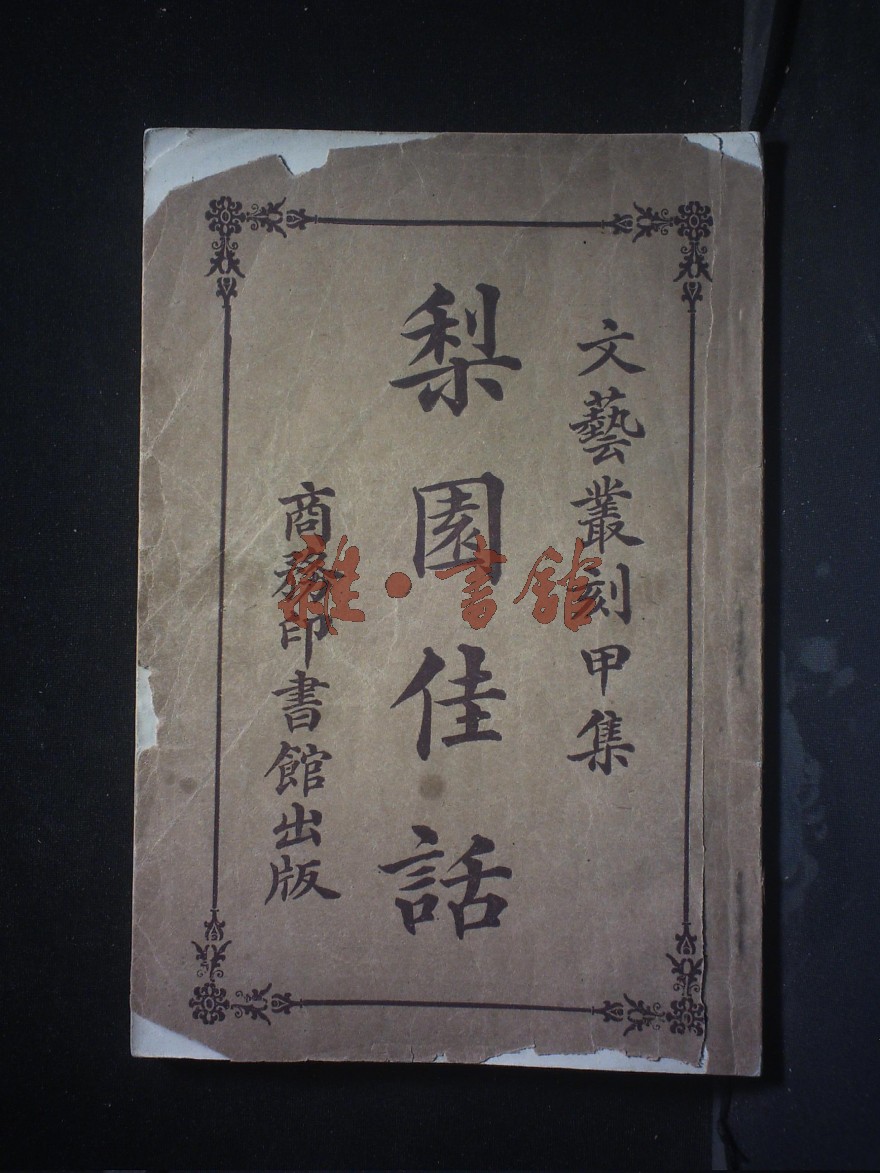 文藝叢刻甲集
梨園佳話
商務印書館出版
雜·書館